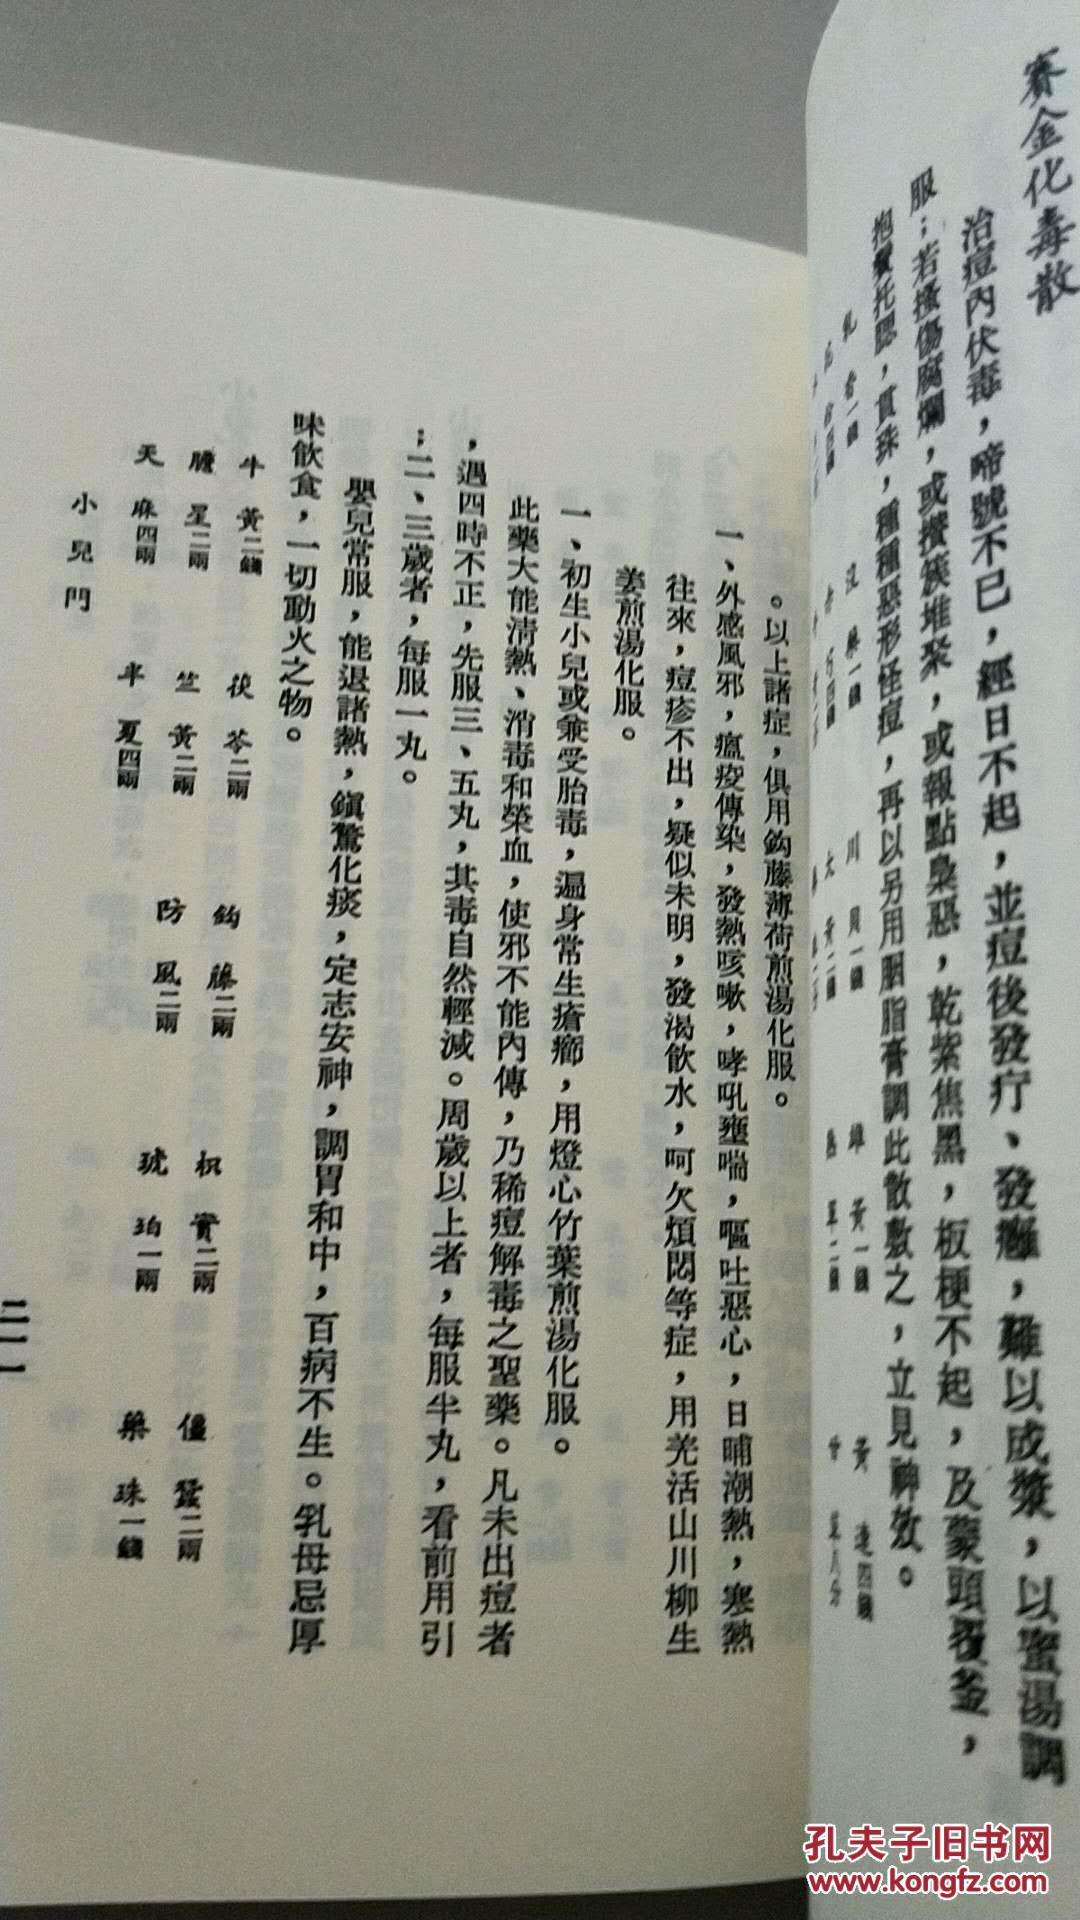 賽金化毒散
治痘內伏毒，啼號不已，經日不起，並痘後發疔、發癰，難以成漿，以蜜湯調
服；若搔傷腐爛，或攢簇堆聚，或報點梟惡，乾紫焦黑，板梗不起，及蒙頭覆釜，
抱鬢托腮，貫珠，種種惡形怪痘，再以另用胭脂膏調此散敷之，立見神效。
川 貝一錢 雄 黃一錢 黃 連四錢
。以上諸症，俱用鈎藤薄荷煎湯化服。
一、外感風邪，瘟疫傳染，發熱咳嗽，哮吼壅喘，嘔吐惡心，日晡潮熱，寒熱
往來，痘疹不出，疑似未明，發渴飲水，呵欠煩悶等症，用羌活山川柳生
姜煎湯化服。
一、初生小兒或兼受胎毒，遍身常生瘡癤，用燈心竹葉煎湯化服。
此藥大能清熱、消毒和榮血，使邪不能內傳，乃稀痘解毒之聖藥。凡未出痘者
，遇四時不正，先服三、五丸，其毒自然輕減。周歲以上者，每服半丸，看前用引
；二、三歲者，每服一丸。
嬰兒常服，能退諸熱，鎭驚化痰，定志安神，調胃和中，百病不生。乳母忌厚
味飲食，一切動火之物。
牛 黃二錢 茯 苓二兩 鈎 藤二兩 枳 實二兩 僵 蠶二兩
膽 星二兩 竺 黃二兩 防 風二兩 琥 珀一兩 藥 珠一錢
天 麻四兩 半 夏四兩
小兒門
二一一
孔夫子旧书网
www.kongfz.com